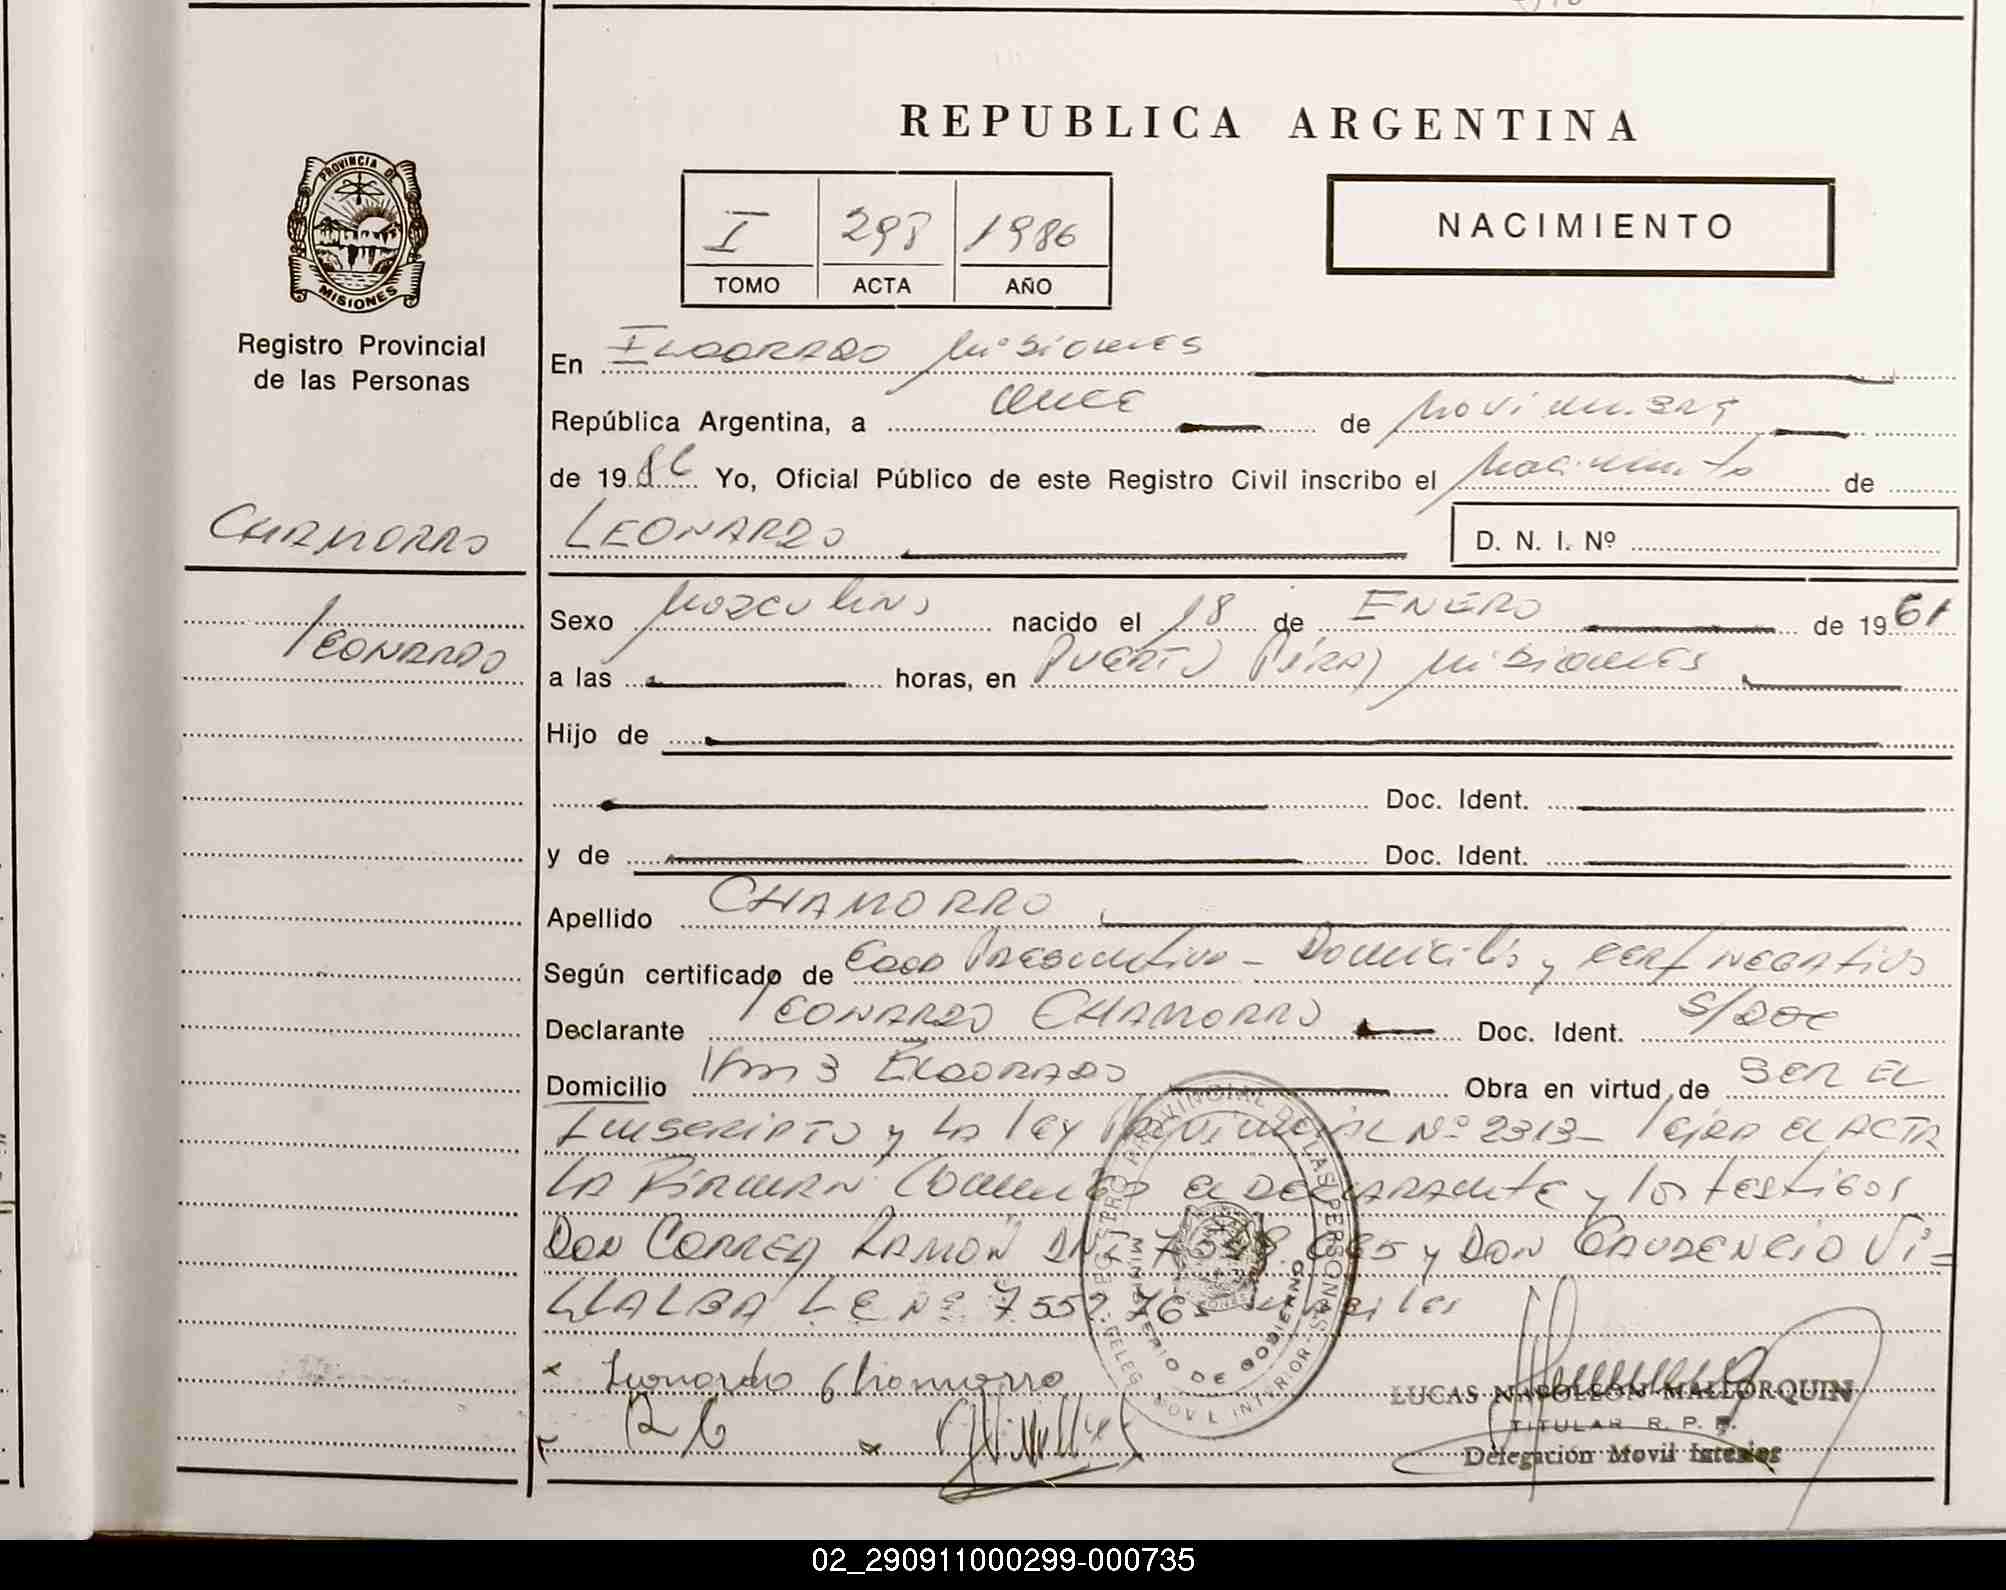 REPUBLICA ARGENTINA
PROVINCIA DE
MISIONES
Registro Provincial
de las Personas
I 298 1986
TOMO ACTA AÑO
NACIMIENTO
En ELDORADO Misiones
República Argentina, a once de Noviembre
de 1986 Yo, Oficial Público de este Registro Civil inscribo el Nacimiento de
CHAMORRO
LEONARDO
D. N. I. Nº
LEONARDO
Sexo Masculino nacido el 18 de ENERO de 1961
a las horas, en PUERTO Piray Misiones
Hijo de
Doc. Ident.
y de Doc. Ident.
Apellido CHAMORRO
Según certificado de Edad Presuntiva - Domicilio y cert negativo
Declarante LEONARDO CHAMORRO Doc. Ident. S/DOC
Domicilio Km 3 ELDORADO Obra en virtud de SER EL
Inscripto y LA Ley Provincial Nº 2313 - Leída el ACTA
LA Firman Conmigo el DECLARANTE y los testigos
DON CORREA RAMON DNI y DON GAUDENCIO VI=
LLALBA LE Nº
Leonardo Chamorro
R C
REGISTRO PROVINCIAL DE LAS PERSONAS
MINISTERIO DE GOBIERNO
DELEG. MOVIL INTERIOR
LUCAS NAPOLEON MALLORQUIN
TITULAR R. P. P.
Delegación Movil Interior
02_290911000299-000735